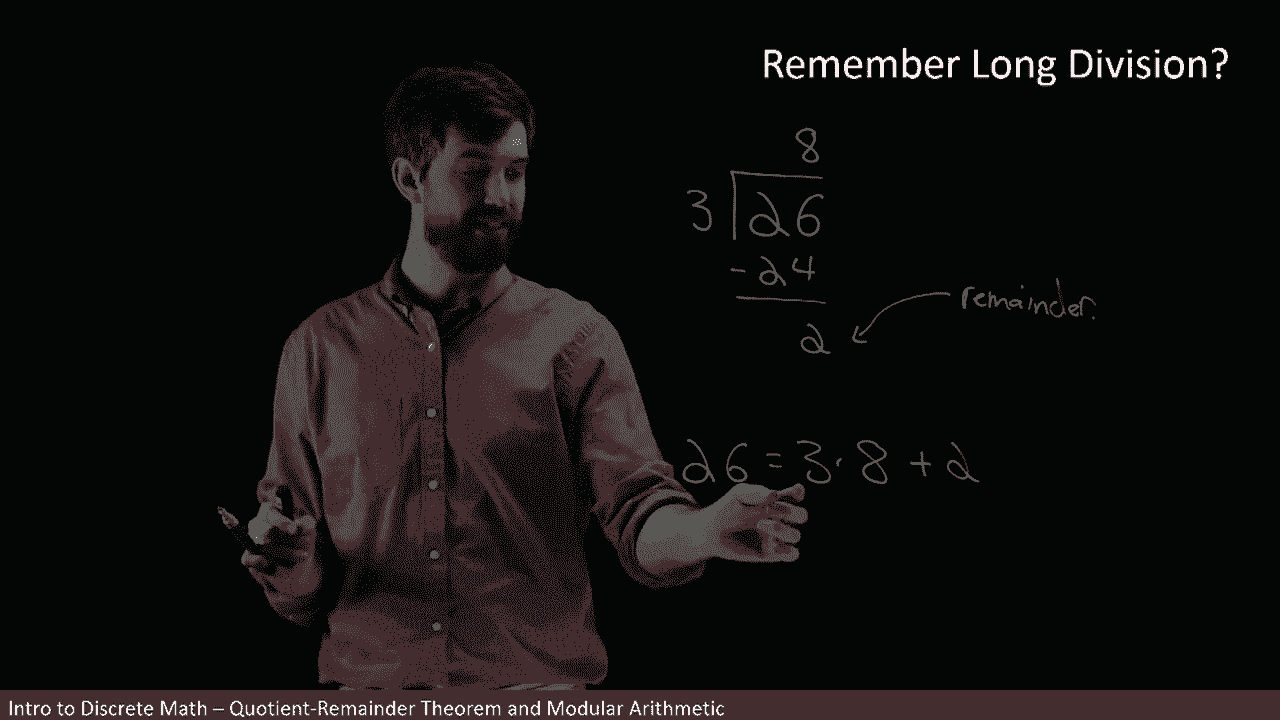 Remember Long Division?
8
3 26
-24
2
remainder.
26 = 3·8 + 2
Intro to Discrete Math – Quotient-Remainder Theorem and Modular Arithmetic